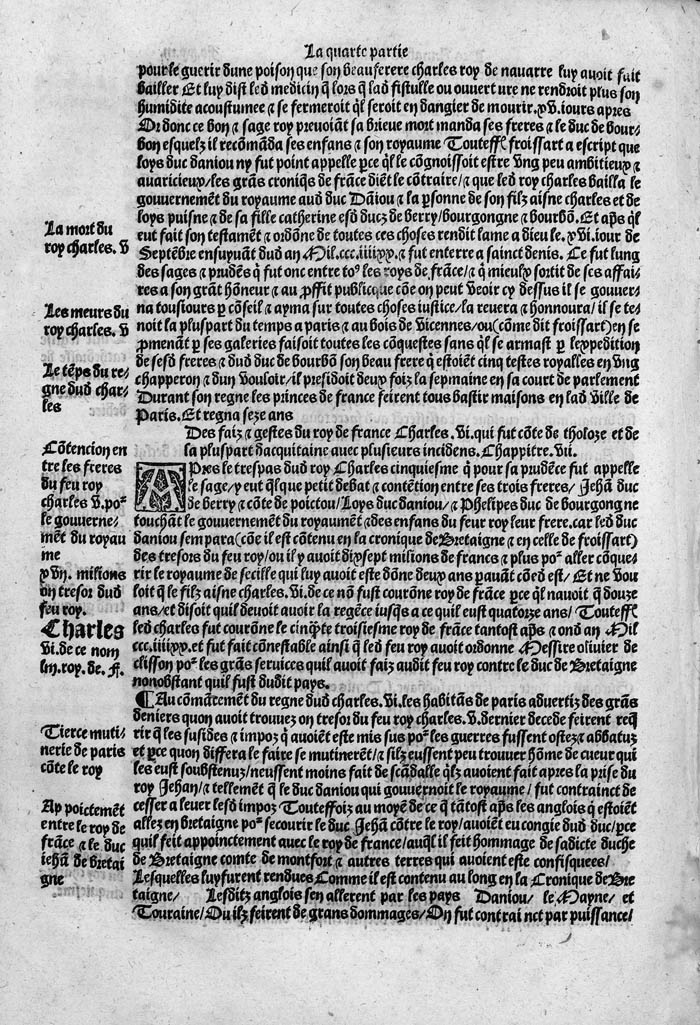 La quarte partie
pour le guerir dune poison que son beaufrere charles roy de navarre luy avoit fait
bailler Et luy dist led medicin q̃ lors q̃ lad fistulle ou ouvert ure ne rendroit plus son
humidite acoustumee ⁊ se fermeroit q̃l seroit en dangier de mourir. xv. iours apres
Or donc ce bon ⁊ sage roy prevoiãt sa brieue mort manda ses freres ⁊ le duc de bour-
bon esquelz il recõmãda ses enfans ⁊ son royaume Touteffꝭ froissart a escript que
loys duc daniou ny fut point appelle pce q̃l le cõgnoissoit estre vng peu ambitieux ⁊
auaricieux/ les grãs croniq̃s de frãce diẽt le cõtraire/ ⁊ que led roy charles bailla le
gouvernemẽt du royaume aud duc Dãiou ⁊ la psonne de son filz aisne charles et de
loys puisne ⁊ de sa fille catherine esd ducz de berry/ bourgongne ⁊ bourbõ. Et aps̃ q̃l
La mort du
roy charles. v
eut fait son testamẽt ⁊ ordõne de toutes ces choses rendit lame a dieu le. xvi. iour de
Septẽbre ensuyuãt dud an Mil. ccc. iiiixx. ⁊ fut enterre a sainct denis. Ce fut lung
des sages ⁊ prudẽs q̃ fut onc entre toꝰ les roys de frãce/ ⁊ q̃ mieulx sortit de ses affai
res a son grãt hõneur ⁊ au pffit publicque cõe on peut veoir cy dessus il se gouver-
Les meurs du
roy charles. v
na tousiours p cõseil ⁊ ayma sur toutes choses iustice/ la revera ⁊ honnoura/ il se te-
noit la pluspart du temps a paris ⁊ au bois de vicennes/ ou (cõme dit froissart) en se
pmenãt p ses galeries faisoit toutes les cõquestes sans q̃l se armast p lexpedition
Le tẽps du re-
gne dud char-
les
de sesd freres ⁊ dud duc de bourbõ son beau frere q̃ estoiẽt cinq testes royalles en vng
chapperon ⁊ dun vouloir/ il presidoit deux foiz la sepmaine en sa court de parlement
Durant son regne les princes de france feirent tous bastir maisons en lad ville de
Paris. Et regna seze ans
Des faiz ⁊ gestes du roy de france Charles. vi. qui fut cõte de tholoze et de
la pluspart dacquitaine avec plusieurs incidens. Chappitre. vii.
Cõtencion en
tre les freres
du feu roy
charles v. poᷣ
le gouverne/
mẽt du royau
me
APres le trespas dud roy Charles cinquiesme q̃ pour sa prudẽce fut appelle
le sage/ y eut q̃lque petit debat ⁊ contẽtion entre ses trois freres/ Jehã duc
de berry ⁊ cõte de poictou/ Loys duc daniou/ ⁊ Phelipes duc de bourgong ne
touchãt le gouvernemẽt du royaumẽt ⁊ des enfans du feur roy leur frere. car led duc
daniou sempara (cõe il est cõtenu en la cronique de Bretaigne ⁊ en celle de froissart)
des tresors du feu roy/ ou il y avoit dixsept milions de francs ⁊ plus poᷣ aller cõque-
xvii. milions
on tresor dud
feu roy.
rir le royaume de secille qui luy avoit este dõne deux ans pauãt cõe d est/ Et ne vou
loit q̃ le filz aisne charles. vi. de ce nõ fust courõne roy de frãce pce q̃l nauoit q̃ douze
ans/ et disoit quil devoit avoir la regẽce iusq̃s a ce quil eust quatorze ans/ Touteffꝭ
Charles
vi. de ce nom
liii. roy. de. fr.
led charles fut courõne le cinq̃te troisiesme roy de frãce tantost aps̃ ⁊ ond an Mil
ccc. iiiixx. et fut fait cõnestable ainsi q̃ led feu roy avoit ordonne Messire olivier de
clisson poᷣ les grãs services quil avoit faiz audit feu roy contre le duc de Bretaigne
nonobstant quil fust dudit pays.
¶ Au cõmãcemẽt du regne dud charles. vi. les habitãs de paris advertiz des grãs
deniers quon avoit trouuez on tresor du feu roy charles. v. dernier decede feirent req̃
Tierce muti-
nerie de paris
cõte le roy
rir q̃ les susides ⁊ impoz q̃ avoiẽt este mis sus poᷣ les guerres fussent ostez ⁊ abbatuz
et pce quon differa le faire se mutinerẽt/ ⁊ silz eussent peu trouver hõme de cueur qui
les eust soubstenuz/ neussent moins fait de scãdalle q̃lz avoient fait apres la prise du
roy Jehan/ ⁊ tellemẽt q̃ le duc daniou qui gouvernoit le royaume/ fut contrainct de
Ap poictemẽt
entre le roy de
frãce ⁊ le duc
iehã de bretai
gne
cesser a lever lesd impoz Touteffoiz au moyẽ de ce q̃ tãtost aps̃ les anglois q̃ estoiẽt
allez en bretaigne poᷣ secourir le duc Jehã cõtre le roy/ avoiẽt eu congie dud duc/ pce
quil feit appoinctement avec le roy de france/ auq̃l il feit hommage de sadicte duche
de Bretaigne comte de montfort ⁊ autres terres qui avoient este confisquees/
Lesquelles luy furent rendues Comme il est contenu au long en la Cronique de Bre
taigne/ Lesditz anglois sen allerent par les pays Daniou/ le Mayne/ et
Touraine/ Ou ilz feirent de grans dommages/ On fut contrai nct par puissance/